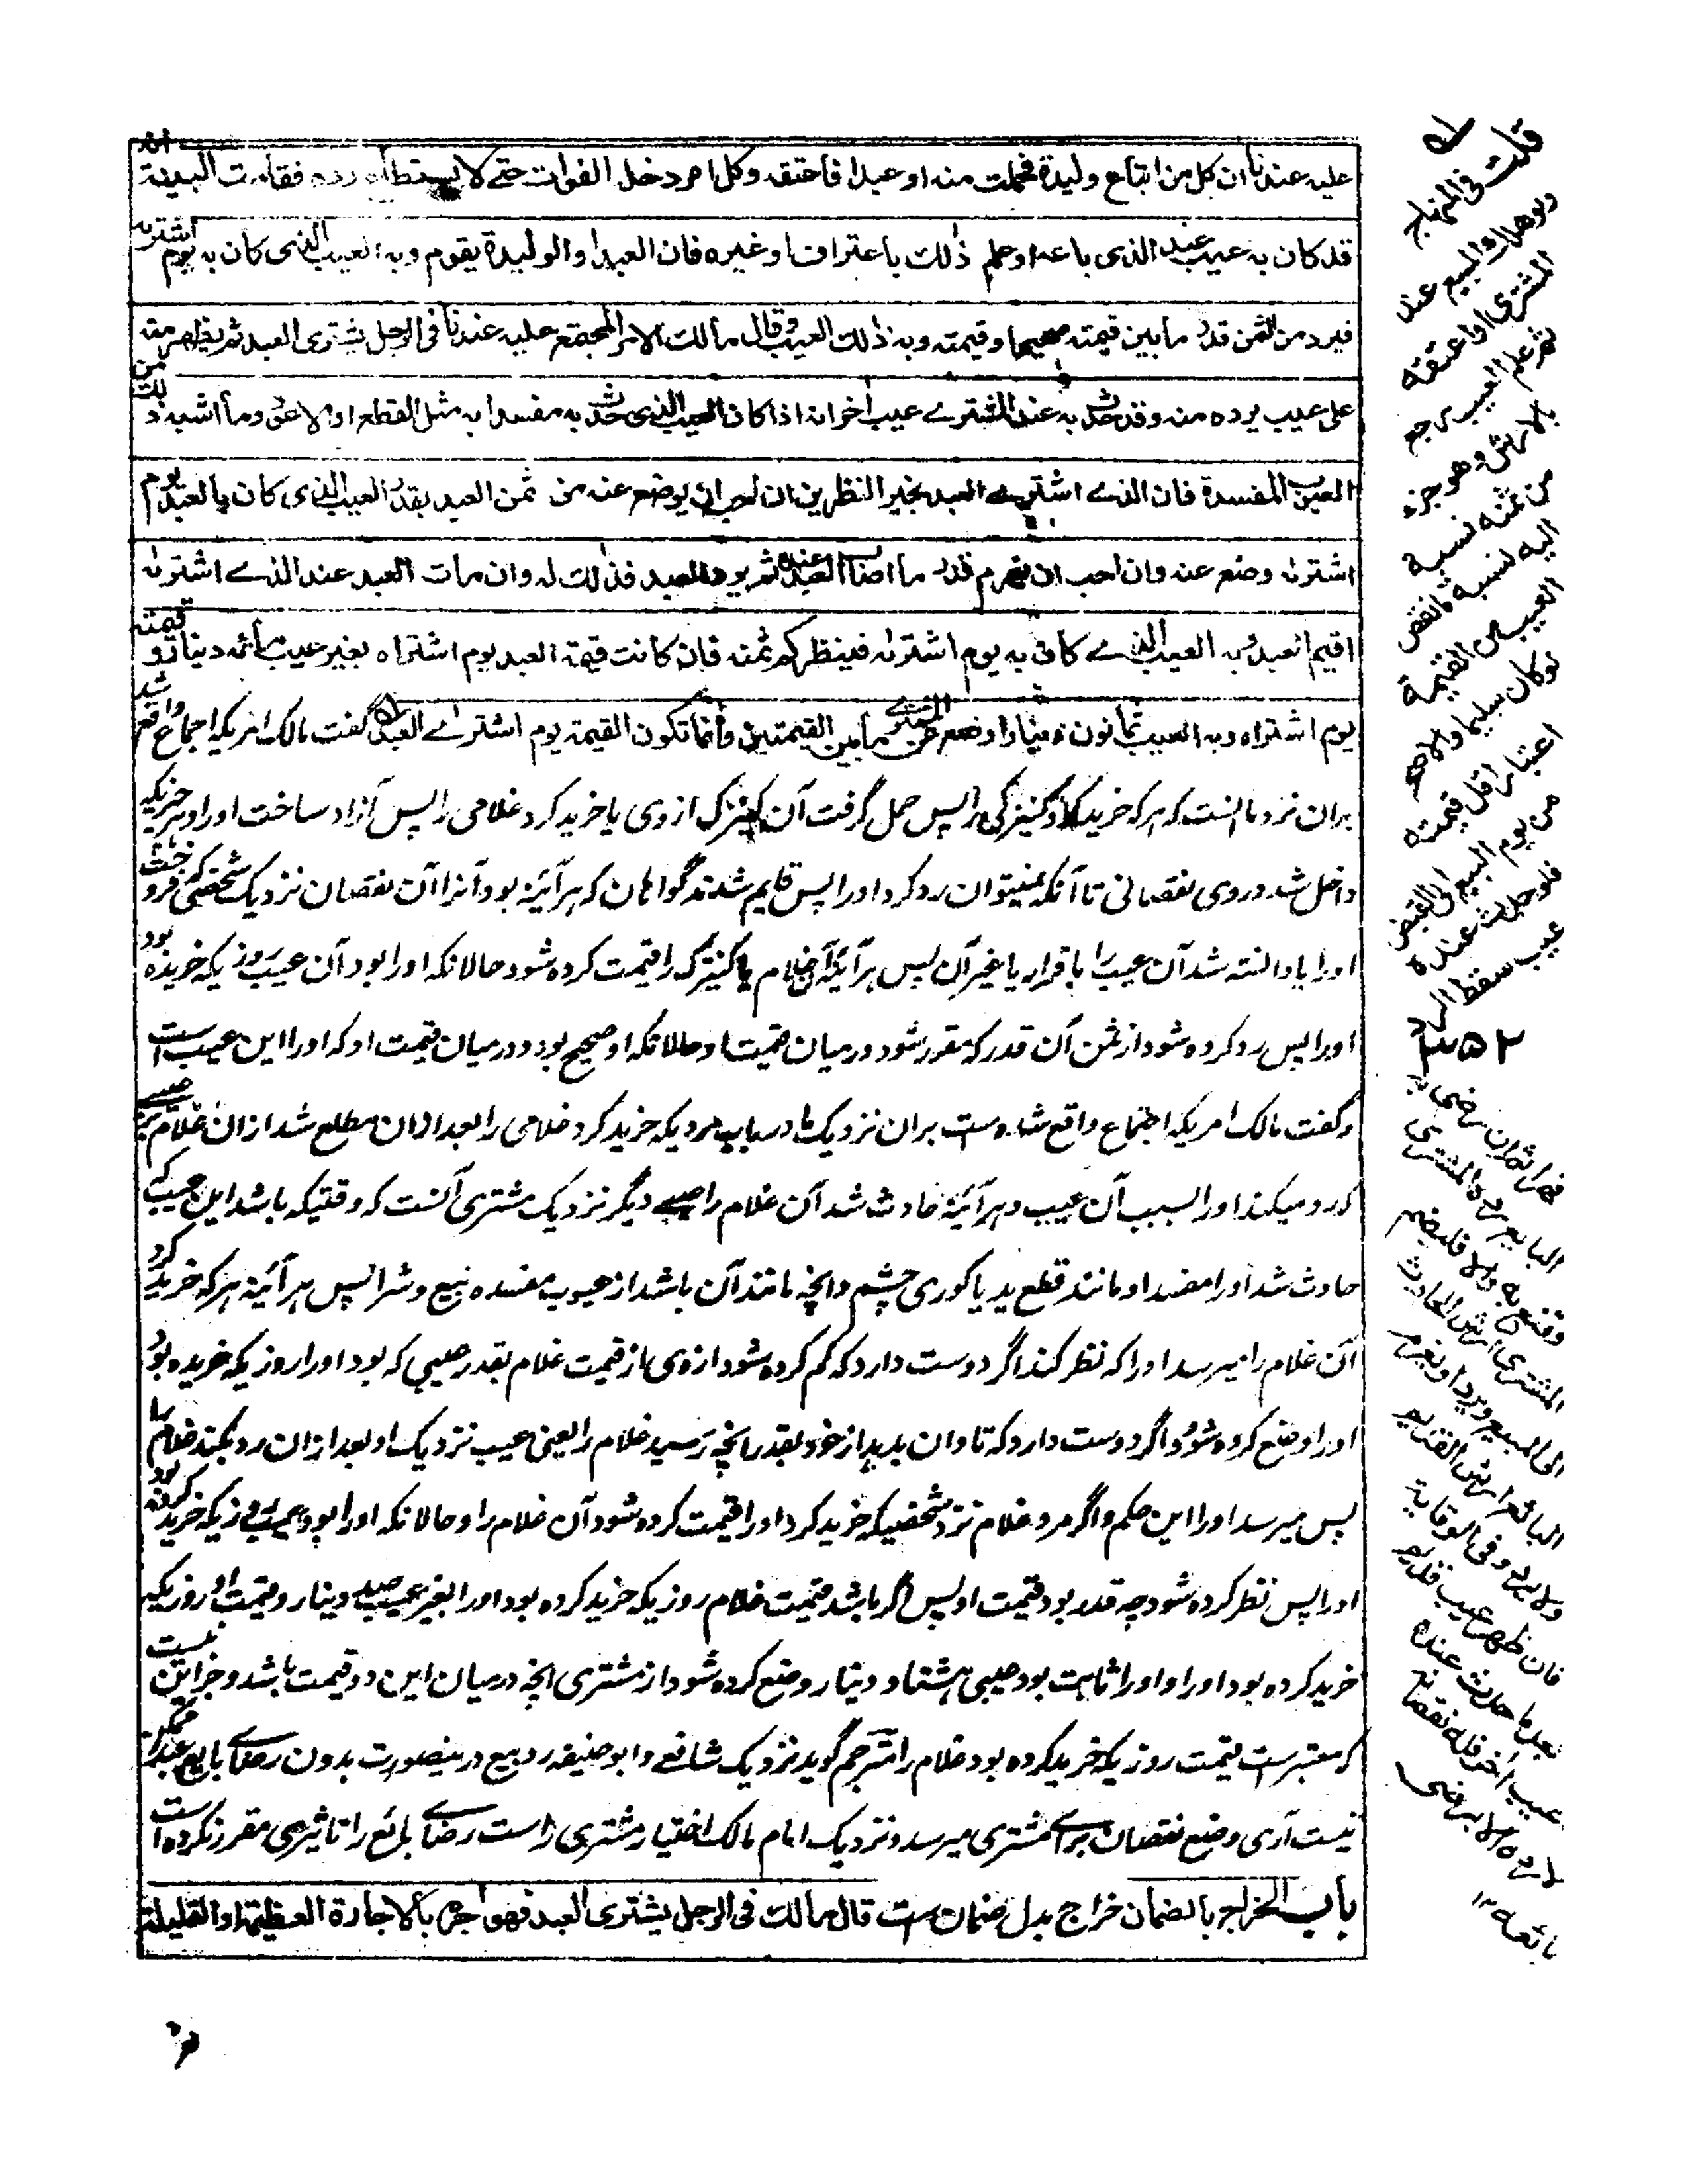 عليه عندنا ان كل من ابتاع وليدة فحملت منه او عبدا فاعتقه وكل امر دخل الفوات حتے لا يستطاع رده فقامت البينة
قد كان به عيب عند الذى باعه او علم ذٰلك باعتراف او غيره فان العبد او الوليدة يقوم وبه العيب الذى كان به يوم اشتراه
فيرد من الثمن قدر ما بين قيمته صحيحا وقيمته وبه ذٰلك العيب وقال مالك الامر المجتمع عليه عندنا فى الرجل يشترى العبد ثم يظهر منه
على عيب يرده منه وقد حدث به عند المشترے عيب اخر انه اذا كان العيب الذى حدث به مفسدا به مثل القطع او العور وما اشبه ذٰلك من
العيوب المفسدة فان الذے اشترے العبد بخير النظرين ان احب ان يوضع عنه من ثمن العبد بقدر العيب الذى كان بالعبد يوم
اشتراه وضع عنه وان احب ان يغرم قدر ما اصاب العبد عنده ثم يرد العبد فذٰلك له وان مات العبد عند الذے اشتراه
اقيم العبد وبه العيب الذے كان به يوم اشتراه فينظر كم ثمنه فان كانت قيمة العبد يوم اشتراه بغير عيب مائة دينار وقيمته
يوم اشتراه وبه العيب ثمانون دينارا وضع عن المشترے ما بين القيمتين وانما تكون القيمة يوم اشترے العبد گفت مالک امریکه اجماع واقع شد
بران نزد ما انست که هر که خرید کرد کنیزکی را پس حمل گرفت آن کنیزک ازوی یا خرید کرد غلامی را پس آزاد ساخت او را و هر چیزیکه
داخل شد در وی نقصانی تا آنکه نمیتوان رد کرد او را پس قایم شدند گواهان که هر آئینه بود آنرا آن نقصان نزدیک شخصی که فروخت
او را یا دانسته شد آن عیب را باقرار یا غیر آن پس هر آئینه آن غلام یا کنیزک را قیمت کرده شود حالانکه او را بود آن عیب روزیکه خریده بود
او را پس رد کرده شود از ثمن آن قدر که مقرر شود درمیان قیمت او حالانکه او صحیح بود و درمیان قیمت او که او را این عیب است
و گفت مالک امریکه اجتماع واقع شده است بران نزدیک ما در باب مردیکه خرید کرد غلامی را بعد ازان مطلع شد ازان غلام بر عیبے
که رد میکند او را بسبب آن عیب و هر آئینه حادث شد آن غلام را عیبے دیگر نزدیک مشتری آنست که وقتیکه باشد این عیب که
حادث شد او را مفسد او مانند قطع ید یا کوری چشم و انچه مانند آن باشد از عیوب مفسده بیع و شرا پس هر آئینه هر که خرید کرد
آن غلام را میرسد او را که نظر کند اگر دوست دارد که کم کرده شود ازوی از قیمت غلام بقدر عیبی که بود او را روزیکه خریده بود
او را وضع کرده شود و اگر دوست دارد که تاوان بدهد از خود بقدر انچه رسید غلام را یعنی عیب نزدیک او بعد ازان رد بکند غلام را
پس میرسد او را این حکم و اگر مرد غلام نزد شخصیکه خرید کرد او را قیمت کرده شود آن غلام را و حالانکه او را بود عیب روزیکه خرید کرده بود
او را پس نظر کرده شود چه قدر بود قیمت او پس اگر باشد قیمت غلام روزیکه خرید کرده بود او را بغیر عیب صد دینار و قیمت او روزیکه
خرید کرده بود او را و او را ثابت بود عیبی هشتاد دینار وضع کرده شود از مشتری انچه درمیان این دو قیمت باشد و جز این نیست
که معتبر است قیمت روزیکه خرید کرده بود غلام را مترجم گوید نزدیک شافعے و ابو حنیفه رد بیع درینصورت بدون رضاے بایع ممکن
نیست آری وضع نقصان براے مشتری میرسد و نزدیک امام مالک اختیار مشتری راست رضاے بائع را تاثیری مقرر نکرده است
باب الخراج بالضمان خراج بدل ضمان ست قال مالك فى الرجل يشترى العبد فيواجره بالاجارة العظيمة او القليلة
قلت فى المنهاج
ولو هلك المبيع عند
المشترى او اعتقه
ثم علم العيب رجع
بالارش وهو جزء
من ثمنه نسبة
اليه نسبة ما نقص
العيب من القيمة
لو كان سليما والاصح
اعتبار اقل قيمته
من يوم البيع الى القبض
فلو حدث عنده
عيب سقط الرد
قهرا ثم ان رضى به
البايع رده المشترى
وقنع به والا فليضم
المشترى ارش الحادث
الى المبيع ويرد او يغرم
البائع ارش القديم
ولا يرد وفى الوقاية
فان ظهر عيب قديم
بعد ما حدث عنده
عيب آخر فله نقصانه
لا رده الا برضى
بائعه ١٢